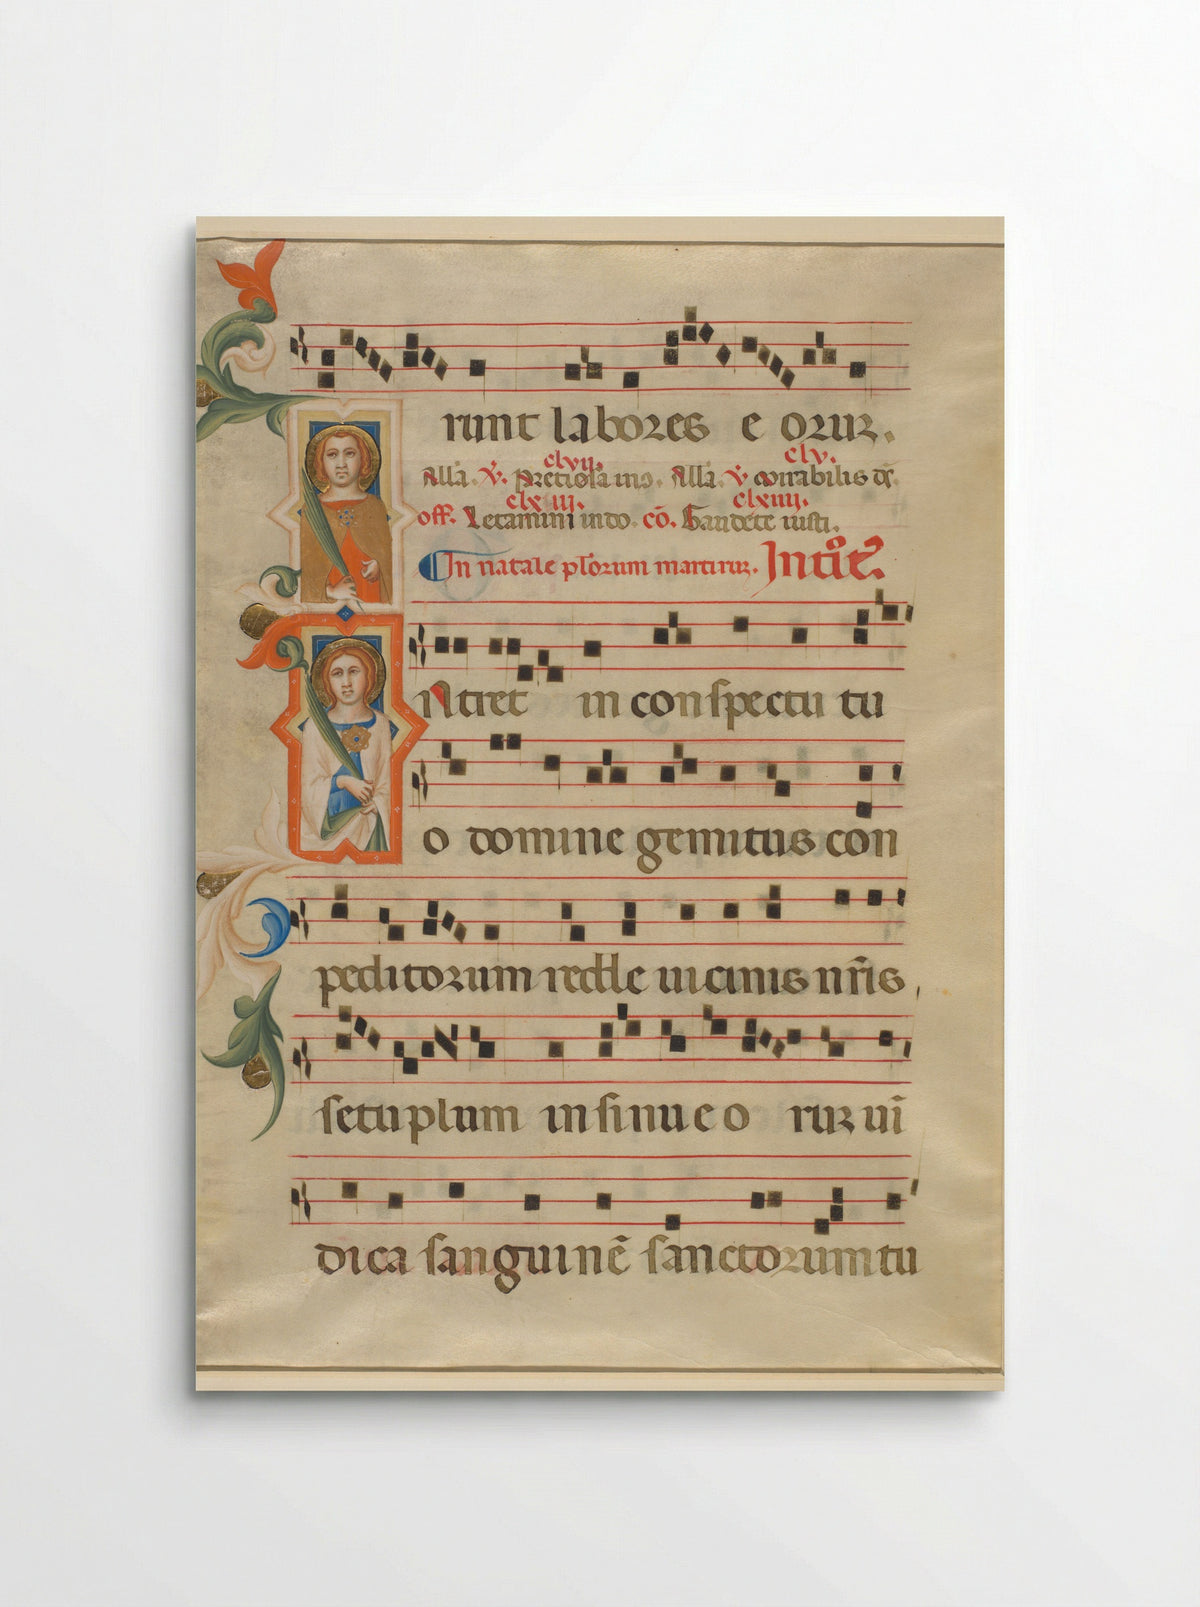 runt labores eorur.
clvii. clv.
Alla. v. Preciosa ī no. Alla. v mirabilis ds.
clxiii. clxiiii.
off. Letamini in do. cō. Gaudete iusti.
In natale plorum martirur. Introit.
Ntret in conspectu tu
o domine gemitus con
peditorum redde uicinis nr̄is
setuplum in sinu eorur uī
dica sanguinē sanctorum tu